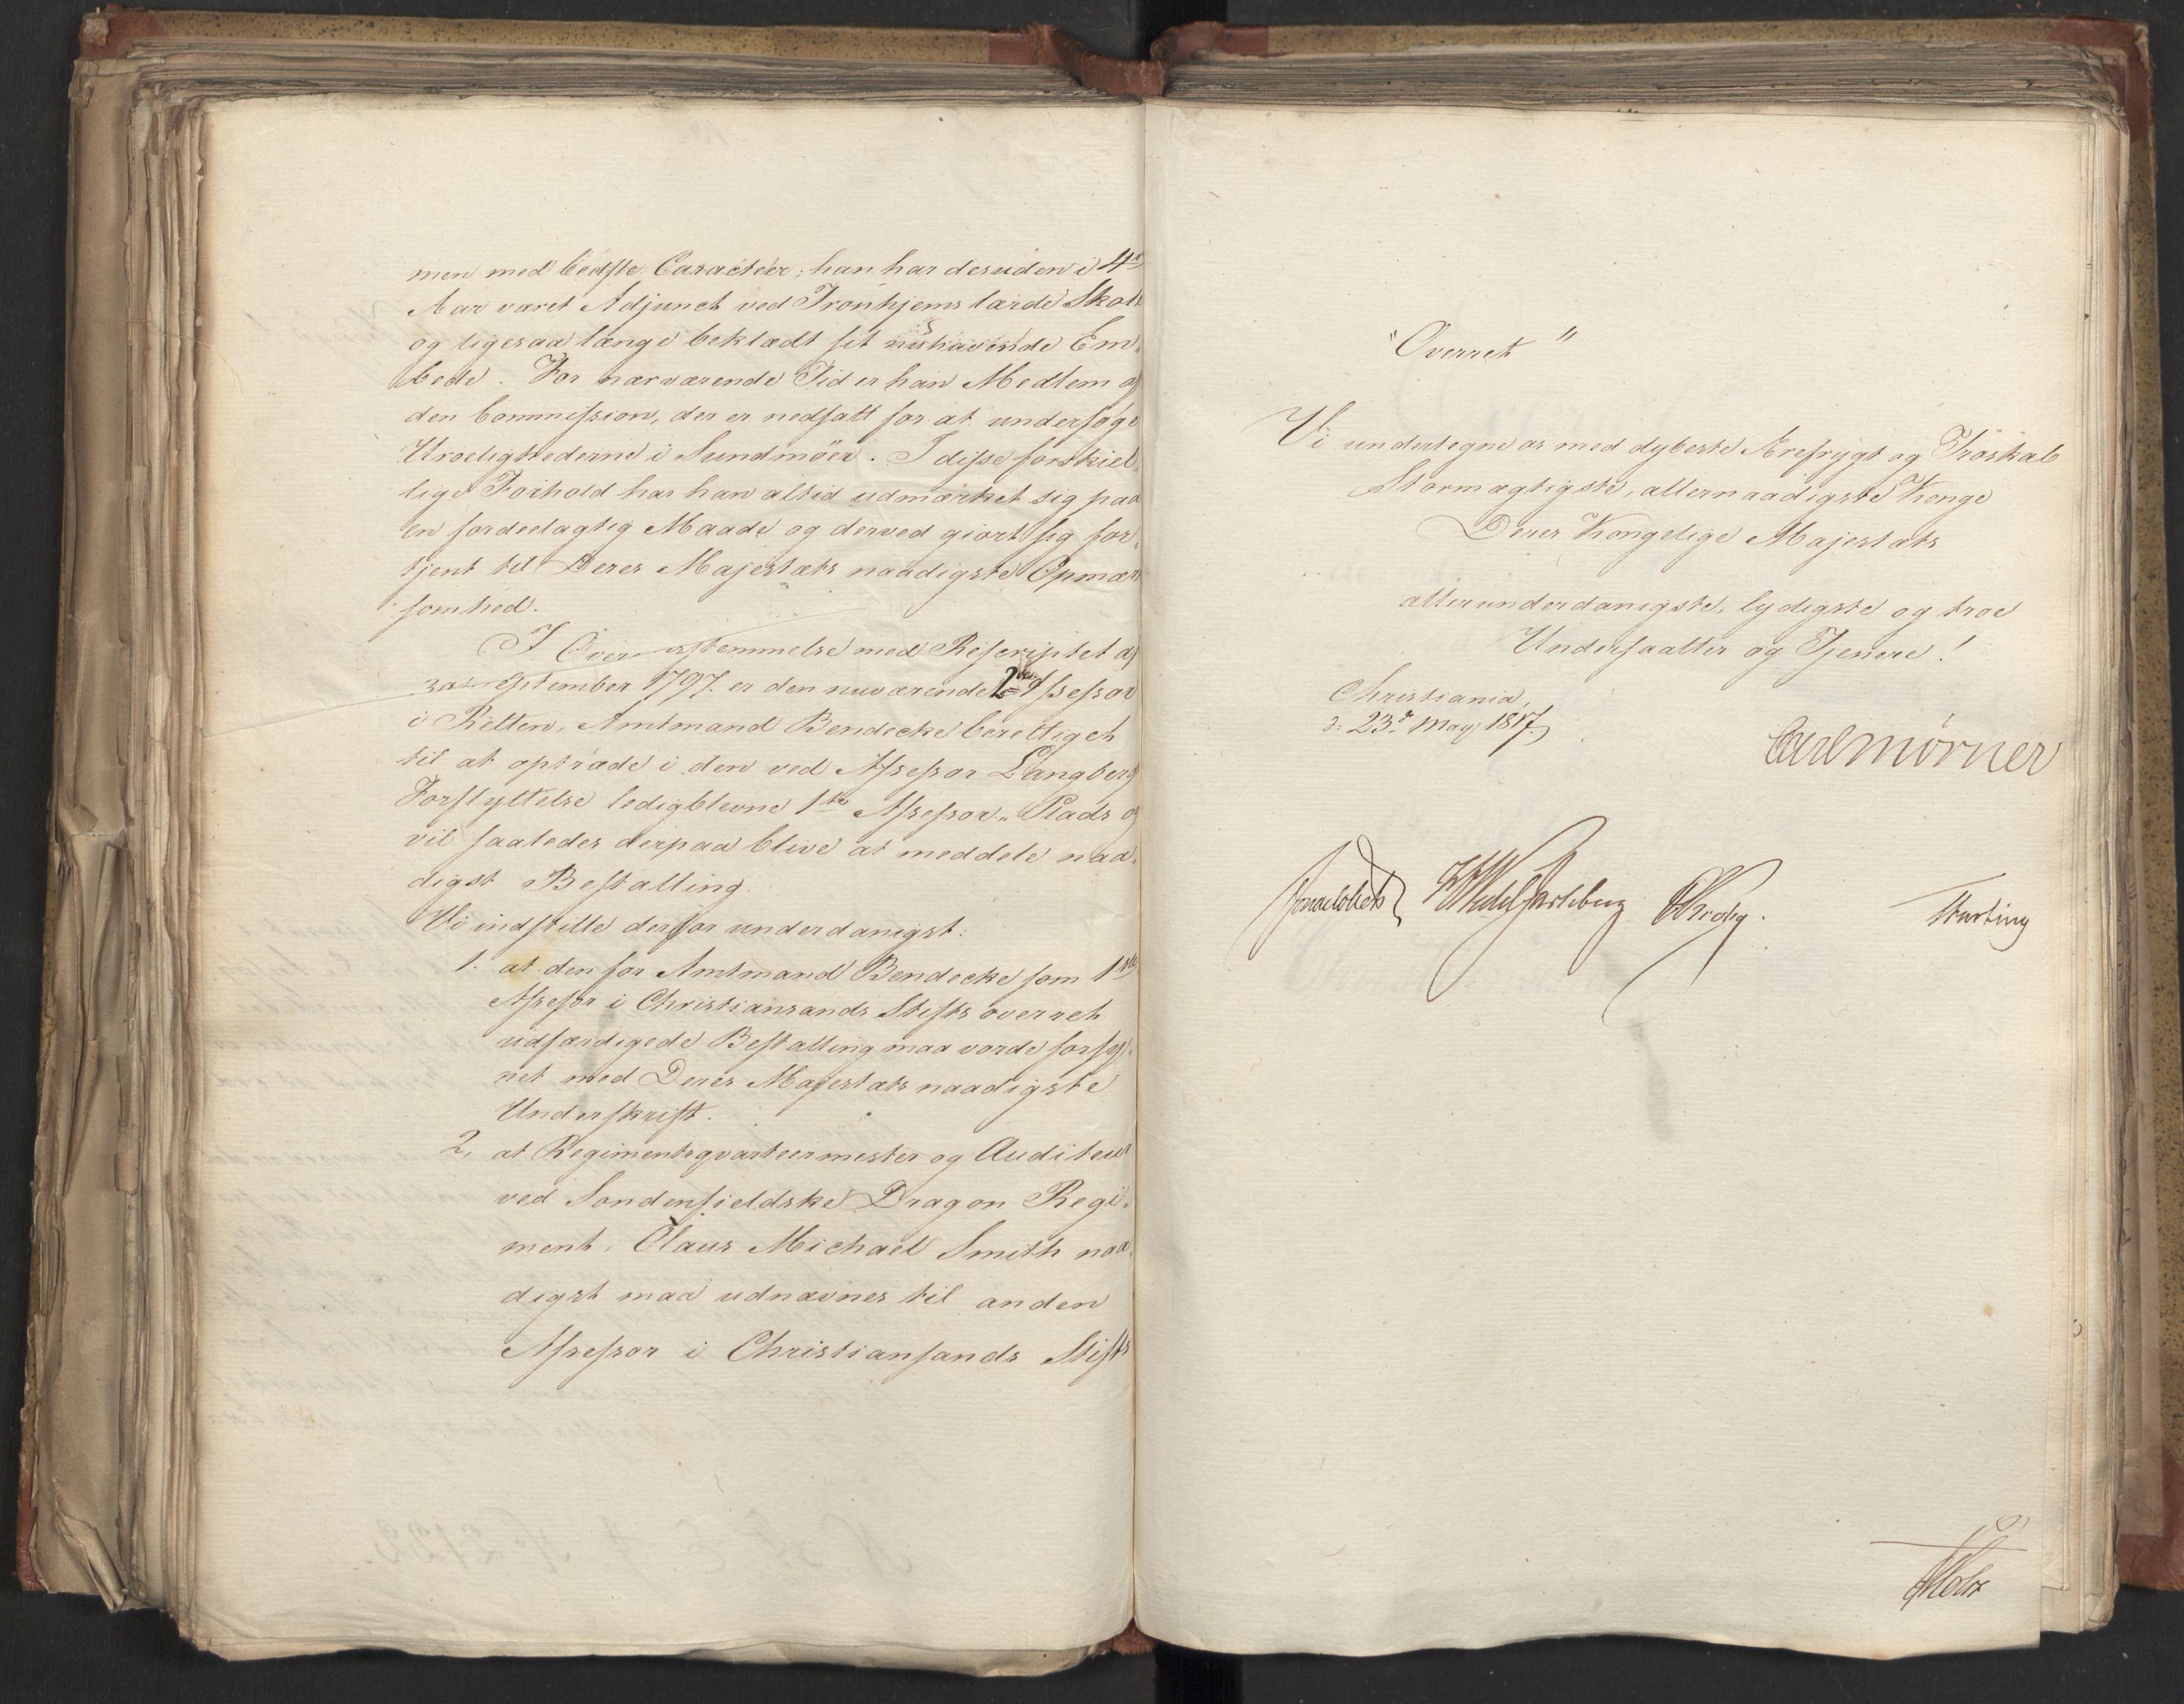 men med bedste Caracteer; han har desuden i 4
Aar været Adjunct ved Tronhjems lærde Skole
og ligesaa længe beklædt sit nuhavende Em-
bede. For nærværende Tid er han Medlem af
den Commission, der er nedsatt for at undersøge
Uroelighederne i Sundmöer. I disse forskiel-
lige Forhold har han altid udmærket sig paa
en fordeelagtig Maade og derved giort sig for-
tjent til Deres Majestæts naadigste Opmærk
somhed.
I Overensstemmelse med Rescriptet af
September 1797. er den nuværende 2den Assessor
i Retten, Amtmand Bendecke berettiget
til at optræde i den ved Assessor Langberg
Forflyttelse ledigblevne 1ste Assessor-Plads og
vil saaledes derpaa blive at meddele naa-
digst Bestalling.
Vi indstille derfor underdanigst:
1. at den for Amtmand Bendecke som 1ste
Assessor i Christiansands Stiftsoverret
udfærdigede Bestalling maa vorde forsy-
net med Deres Majestæts naadigste
Underskrift.
2, at Regimentsqvarteermester og Auditeur
ved Søndenfieldske Dragon Regi-
ment, Olaus Michael Smith naa-
digst maa udnævnes til anden
Assessor i Christiansands Stifts
"Overret"
Vi undertegne os med dybeste Ærefrygt og Troskab
Stormægtigste, allernaadigste Konge
Deres Kongelige Majestæts
allerunderdanigste, lydigste og troe
Undersaatter og Tjenere!
Christiania,
d: 23de May 1817.
Carl Mörner
Sommerhielm HWedel Jarlsberg CKrohg.
Holst